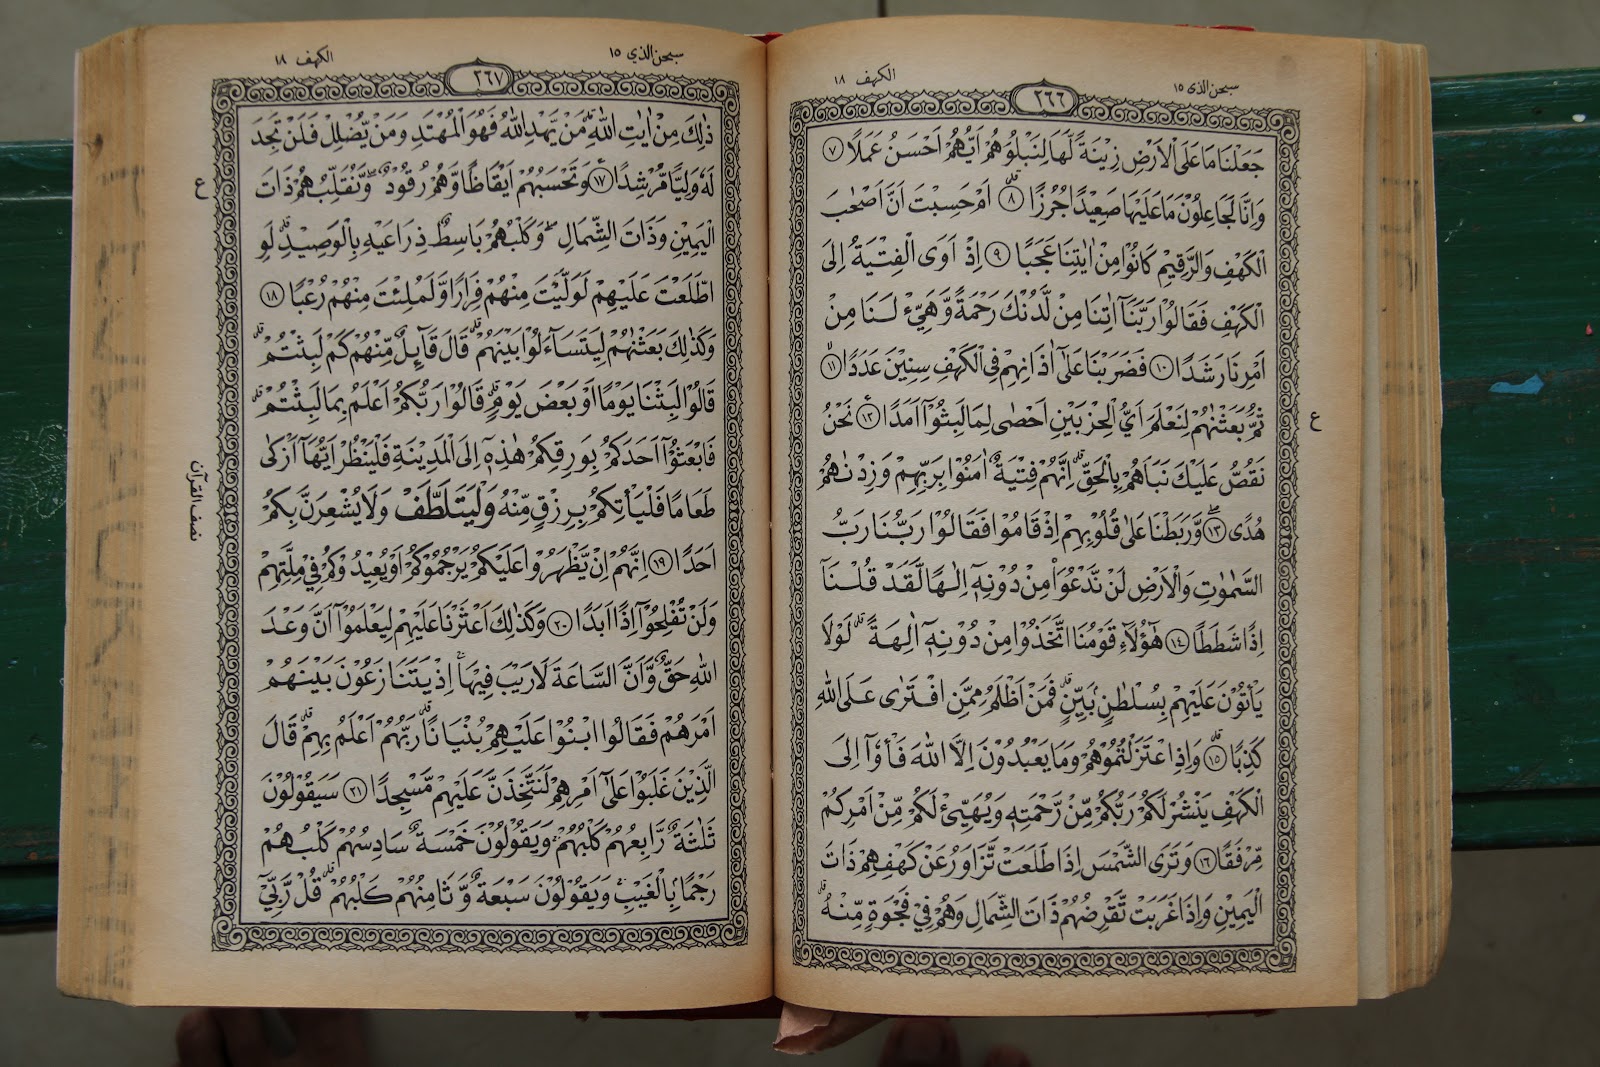 سبحن الذى ١٥
٢٦٦
الكهف ١٨
جَعَلْنَا مَا عَلَى الْاَرْضِ زِيْنَةً لَّهَا لِنَبْلُوَهُمْ اَيُّهُمْ اَحْسَنُ عَمَلًا ﴿٧﴾
وَاِنَّا لَجَاعِلُوْنَ مَا عَلَيْهَا صَعِيْدًا جُرُزًا ﴿٨﴾ اَمْ حَسِبْتَ اَنَّ اَصْحٰبَ
الْكَهْفِ وَالرَّقِيْمِ كَانُوْا مِنْ اٰيٰتِنَا عَجَبًا ﴿٩﴾ اِذْ اَوَى الْفِتْيَةُ اِلَى
الْكَهْفِ فَقَالُوْا رَبَّنَآ اٰتِنَا مِنْ لَّدُنْكَ رَحْمَةً وَّهَيِّئْ لَنَا مِنْ
اَمْرِنَا رَشَدًا ﴿١٠﴾ فَضَرَبْنَا عَلٰٓى اٰذَانِهِمْ فِى الْكَهْفِ سِنِيْنَ عَدَدًا ﴿١١﴾
ثُمَّ بَعَثْنٰهُمْ لِنَعْلَمَ اَيُّ الْحِزْبَيْنِ اَحْصٰى لِمَا لَبِثُوْٓا اَمَدًا ﴿١٢﴾ نَحْنُ
ع
نَقُصُّ عَلَيْكَ نَبَاَهُمْ بِالْحَقِّ ۗ اِنَّهُمْ فِتْيَةٌ اٰمَنُوْا بِرَبِّهِمْ وَزِدْنٰهُمْ
هُدًى ﴿١٣﴾ وَّرَبَطْنَا عَلٰى قُلُوْبِهِمْ اِذْ قَامُوْا فَقَالُوْا رَبُّنَا رَبُّ
السَّمٰوٰتِ وَالْاَرْضِ لَنْ نَّدْعُوَا۟ مِنْ دُوْنِهٖٓ اِلٰهًا لَّقَدْ قُلْنَآ
اِذًا شَطَطًا ﴿١٤﴾ هٰٓؤُلَآءِ قَوْمُنَا اتَّخَذُوْا مِنْ دُوْنِهٖٓ اٰلِهَةً ۗ لَوْلَا
يَأْتُوْنَ عَلَيْهِمْ بِسُلْطٰنٍۢ بَيِّنٍ ۗ فَمَنْ اَظْلَمُ مِمَّنِ افْتَرٰى عَلَى اللّٰهِ
كَذِبًا ﴿١٥﴾ وَاِذِ اعْتَزَلْتُمُوْهُمْ وَمَا يَعْبُدُوْنَ اِلَّا اللّٰهَ فَأْوٗٓا اِلَى
الْكَهْفِ يَنْشُرْ لَكُمْ رَبُّكُمْ مِّنْ رَّحْمَتِهٖ وَيُهَيِّئْ لَكُمْ مِّنْ اَمْرِكُمْ
مِّرْفَقًا ﴿١٦﴾ وَتَرَى الشَّمْسَ اِذَا طَلَعَتْ تَّزَاوَرُ عَنْ كَهْفِهِمْ ذَاتَ
الْيَمِيْنِ وَاِذَا غَرَبَتْ تَّقْرِضُهُمْ ذَاتَ الشِّمَالِ وَهُمْ فِيْ فَجْوَةٍ مِّنْهُ ۗ
سبحن الذي ١٥
٢٦٧
الكهف ١٨
ذٰلِكَ مِنْ اٰيٰتِ اللّٰهِ ۗ مَنْ يَّهْدِ اللّٰهُ فَهُوَ الْمُهْتَدِ وَمَنْ يُّضْلِلْ فَلَنْ تَجِدَ
لَهٗ وَلِيًّا مُّرْشِدًا ﴿١٧﴾ وَتَحْسَبُهُمْ اَيْقَاظًا وَّهُمْ رُقُوْدٌ ۖ وَّنُقَلِّبُهُمْ ذَاتَ
ع
الْيَمِيْنِ وَذَاتَ الشِّمَالِ ۖ وَكَلْبُهُمْ بَاسِطٌ ذِرَاعَيْهِ بِالْوَصِيْدِ ۗ لَوِ
اطَّلَعْتَ عَلَيْهِمْ لَوَلَّيْتَ مِنْهُمْ فِرَارًا وَّلَمُلِئْتَ مِنْهُمْ رُعْبًا ﴿١٨﴾
وَكَذٰلِكَ بَعَثْنٰهُمْ لِيَتَسَآءَلُوْا بَيْنَهُمْ ۗ قَالَ قَآئِلٌ مِّنْهُمْ كَمْ لَبِثْتُمْ ۗ
قَالُوْا لَبِثْنَا يَوْمًا اَوْ بَعْضَ يَوْمٍ ۗ قَالُوْا رَبُّكُمْ اَعْلَمُ بِمَا لَبِثْتُمْ ۗ
فَابْعَثُوْٓا اَحَدَكُمْ بِوَرِقِكُمْ هٰذِهٖٓ اِلَى الْمَدِيْنَةِ فَلْيَنْظُرْ اَيُّهَآ اَزْكٰى
طَعَامًا فَلْيَأْتِكُمْ بِرِزْقٍ مِّنْهُ وَلْيَتَلَطَّفْ وَلَا يُشْعِرَنَّ بِكُمْ
نصف القرآن
اَحَدًا ﴿١٩﴾ اِنَّهُمْ اِنْ يَّظْهَرُوْا عَلَيْكُمْ يَرْجُمُوْكُمْ اَوْ يُعِيْدُوْكُمْ فِيْ مِلَّتِهِمْ
وَلَنْ تُفْلِحُوْٓا اِذًا اَبَدًا ﴿٢٠﴾ وَكَذٰلِكَ اَعْثَرْنَا عَلَيْهِمْ لِيَعْلَمُوْٓا اَنَّ وَعْدَ
اللّٰهِ حَقٌّ وَّاَنَّ السَّاعَةَ لَا رَيْبَ فِيْهَا ۚ اِذْ يَتَنَازَعُوْنَ بَيْنَهُمْ
اَمْرَهُمْ فَقَالُوا ابْنُوْا عَلَيْهِمْ بُنْيَانًا ۗ رَبُّهُمْ اَعْلَمُ بِهِمْ ۗ قَالَ
الَّذِيْنَ غَلَبُوْا عَلٰٓى اَمْرِهِمْ لَنَتَّخِذَنَّ عَلَيْهِمْ مَّسْجِدًا ﴿٢١﴾ سَيَقُوْلُوْنَ
ثَلٰثَةٌ رَّابِعُهُمْ كَلْبُهُمْ ۚ وَيَقُوْلُوْنَ خَمْسَةٌ سَادِسُهُمْ كَلْبُهُمْ
رَجْمًاۢ بِالْغَيْبِ ۚ وَيَقُوْلُوْنَ سَبْعَةٌ وَّثَامِنُهُمْ كَلْبُهُمْ ۗ قُلْ رَّبِّيْٓ